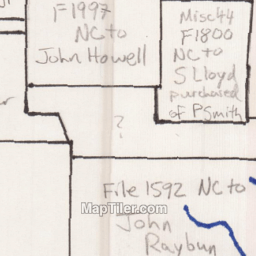 F1997
NC to
John Howell
Misc44
F1800
NC to
S Lloyd
purchased
of P Smith
?
File 1592 NC to
John
Raybun
MapTiler.com